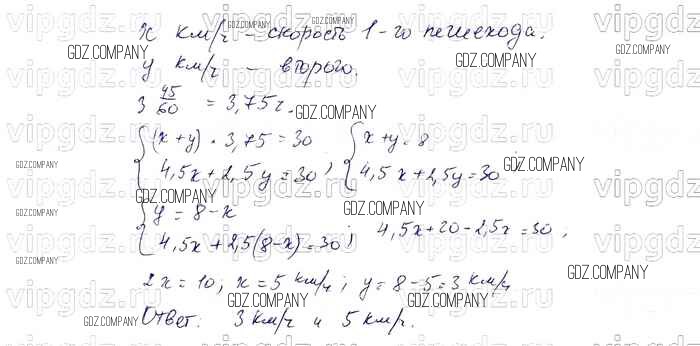 x км/ч - скорость 1-го пешехода.
y км/ч - второго.
3 45/60 = 3,75 ч.
{(x+y) · 3,75 = 30
4,5x + 2,5y = 30; {x+y = 8
4,5x + 2,5y = 30;
{y = 8-x
4,5x + 2,5(8-x) = 30; 4,5x+20-2,5x = 30,
2x = 10, x = 5 км/ч; y = 8-5 = 3 км/ч
Ответ: 3 км/ч и 5 км/ч.
GDZ.COMPANY
vipgdz.ru